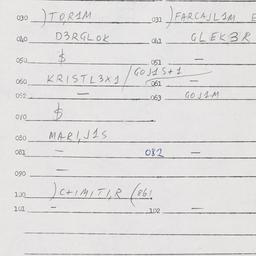 030 )TOR1M 031 )FARCAJL1M E
040 D3RGLOK 041 GLEK3R
050 $ 051 —
060 KRISTL3X1 / GOJ1S+1
061 —
062 — 063 GOJ1M
070 $
080 MARI,J1S
081 — 082 —
090 —
100 )C+IMIT1,R (861
101 — 102 —